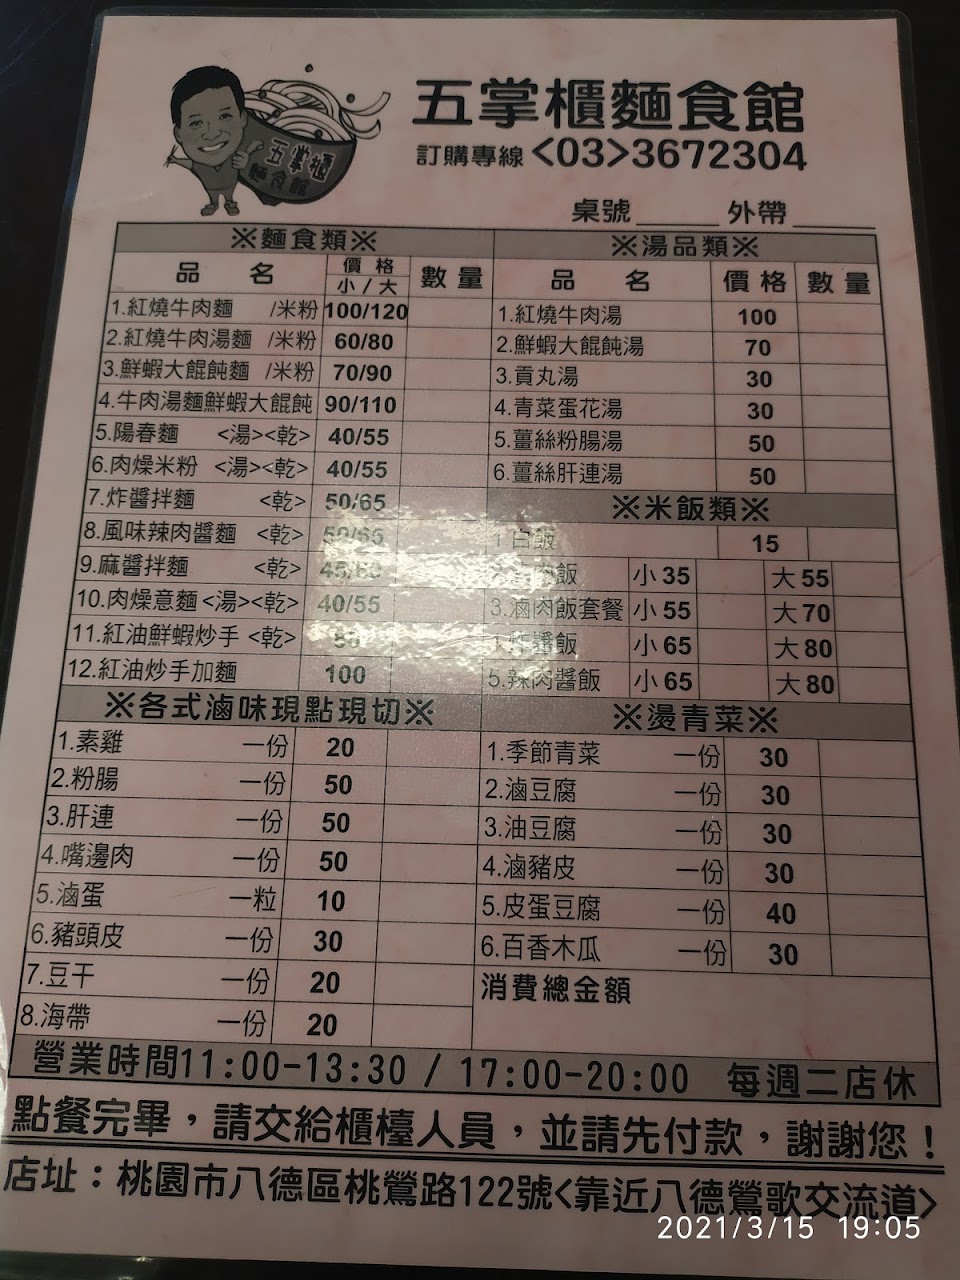 五掌櫃麵食館
五掌櫃
麵食館
訂購專線<03>3672304
桌號______ 外帶______
※麵食類※
品 名 價格 小/大 數量
1.紅燒牛肉麵 /米粉 100/120
2.紅燒牛肉湯麵 /米粉 60/80
3.鮮蝦大餛飩麵 /米粉 70/90
4.牛肉湯麵鮮蝦大餛飩 90/110
5.陽春麵 <湯><乾> 40/55
6.肉燥米粉 <湯><乾> 40/55
7.炸醬拌麵 <乾> 50/65
8.風味辣肉醬麵 <乾> 50/65
9.麻醬拌麵 <乾> 45/60
10.肉燥意麵<湯><乾> 40/55
11.紅油鮮蝦炒手 <乾>
12.紅油炒手加麵 100
※各式滷味現點現切※
1.素雞 一份 20
2.粉腸 一份 50
3.肝連 一份 50
4.嘴邊肉 一份 50
5.滷蛋 一粒 10
6.豬頭皮 一份 30
7.豆干 一份 20
8.海帶 一份 20
※湯品類※
品 名 價格 數量
1.紅燒牛肉湯 100
2.鮮蝦大餛飩湯 70
3.貢丸湯 30
4.青菜蛋花湯 30
5.薑絲粉腸湯 50
6.薑絲肝連湯 50
※米飯類※
1.白飯 15
肉飯 小35 大55
3.滷肉飯套餐 小55 大70
炸醬飯 小65 大80
5.辣肉醬飯 小65 大80
※燙青菜※
1.季節青菜 一份 30
2.滷豆腐 一份 30
3.油豆腐 一份 30
4.滷豬皮 一份 30
5.皮蛋豆腐 一份 40
6.百香木瓜 一份 30
消費總金額
營業時間11:00-13:30 / 17:00-20:00 每週二店休
點餐完畢，請交給櫃檯人員，並請先付款，謝謝您！
店址：桃園市八德區桃鶯路122號<靠近八德鶯歌交流道>
2021/3/15 19:05